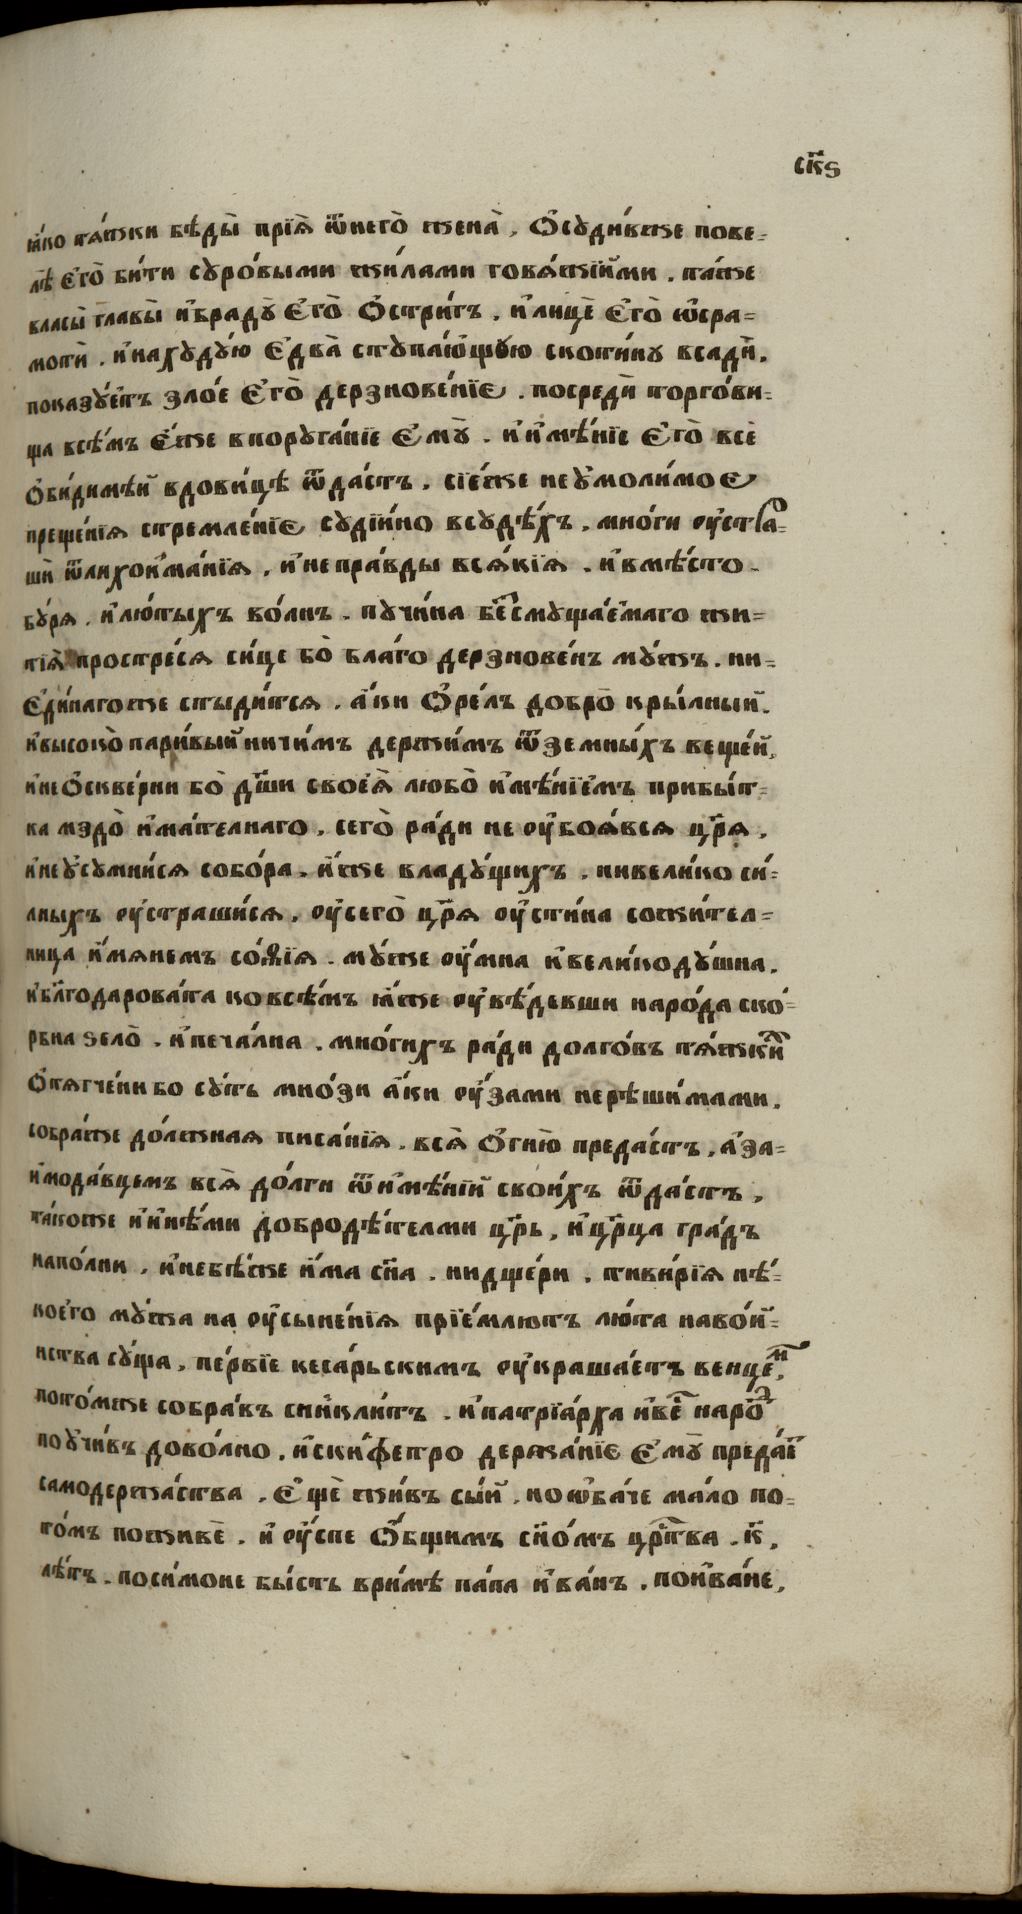 скѕ҃
ꙗ҆́ко тѧ́жки бѣды̀ прїѧ̀ ѿнегѡ̀ жена̀, ѻ҆сꙋди́вже пове=
лѣ̀ є҆го̀ би́ти сꙋро́выми жи́лами говѧ́жїи́ми. та́же
власы̀ главы̀ и҆брадꙋ̀ є҆го̀ ѻ҆стри́гъ, и҆лицѐ є҆го̀ ѡ҆сра=
мотѝ. и҆нахꙋдꙋ́ю є҆два̀ стꙋпаю́щꙋю скоти́нꙋ всадѝ.
показꙋ́етъ зло́е є҆го̀ дерзнове́нїе. посредѝ торго́ви=
ща всѣ́мъ є҆́же впорꙋга́нїе є҆мꙋ̀. и҆и҆мѣ́нїе є҆го̀ всѐ
ѻ҆би́димѣй вдови́цѣ ѿда́стъ. сїе́же неꙋ҆моли́мое
преще́нїѧ стремле́нїе сꙋдїи́но всꙋдѣ́хъ. мно́ги оу҆стра=
шѝ ѿлихои҆ма́нїѧ, и҆непра́вды всѧ́кїѧ. и҆вмѣ́сто
бꙋ́рѧ. и҆лю́тыхъ во́лнъ. пꙋчи́на бе́смꙋща́емаго жи=
тїѧ̀ простре́сѧ си́це бо̀ бла́го дерзнове́нъ мꙋ́жъ. ни=
є҆ди́нагоже стыди́тсѧ. а҆́ки ѻ҆ре́лъ добро̀ кры́лный.
и҆высоко̀ пари́вый ничи́мъ держи́мъ ѿземны́хъ веще́й,
и҆неѻ҆скве́рни бо̀ дш҃и своеѧ̀ любо̀ и҆мѣ́нїемъ прибы́т=
ка мздо̀ и҆ма́телнаго, сего̀ ра́ди не оу҆боѧ́всѧ цр҃ѧ̀,
и҆неꙋ҆сꙋмни́сѧ собо́ра. и҆́же владꙋ́щихъ. нивели́ко си́=
лныхъ оу҆страши́сѧ. оу҆сего̀ цр҃ѧ оу҆сти́на сожи́тел=
ница и҆́мѧнемъ соѳі́ѧ. мꙋ́же оу҆́мна и҆вели́кодꙋ́шна.
и҆блг҃одарова́та ковсѣ́мъ ꙗ҆́же оу҆вѣ́девши наро́да ско́=
рбна ѕело̀. и҆печа́лна. мно́гихъ ра́ди долго́въ тѧ́жки́й
ѻ҆тѧгче́ни бо сꙋ́ть мно́зи а҆́ки оу҆́зами нерѣши́мами.
собра́вже до́лжнаѧ писа́нїѧ. всѧ̀ ѻ҆гню̀ преда́стъ, а҆за=
и҆мода́вцемъ всѧ̀ до́лги ѿи҆мѣ́нїй свои́хъ ѿда́стъ,
та́коже и҆и҆нѣ́ми добродѣ́телми цр҃ь, и҆цр҃ца гра́дъ
напо́лни. и҆небѣ́же и҆́ма сн҃а. нидще́ри. тиви́рїѧ нѣ́=
коего мꙋ́жа на оу҆сыне́нїѧ прїе́млютъ лю́та наво́й=
нства сꙋ́ща, пе́рвїе кеса́рьскимъ оу҆краша́етъ венце́м,
пото́мже собра́въ сиикли́тъ. и҆патрїа́рха и҆ве́с наро́д
поꙋчи́въ дово́лно. и҆ски́фетро держа́нїе є҆мꙋ̀ преда́ет
самодержа́ства, є҆щѐ жи́въ сы́й, ноѡ҆ба́че ма́ло по=
то́мъ поживѐ. и҆ оу҆́спе ѻ҆́бщимъ сно́мъ црⷭ҇тва. к҃.
лѣ́тъ. поси́моне бы́стьври́мѣ па́па и҆ва́нъ. пои҆ва́не,